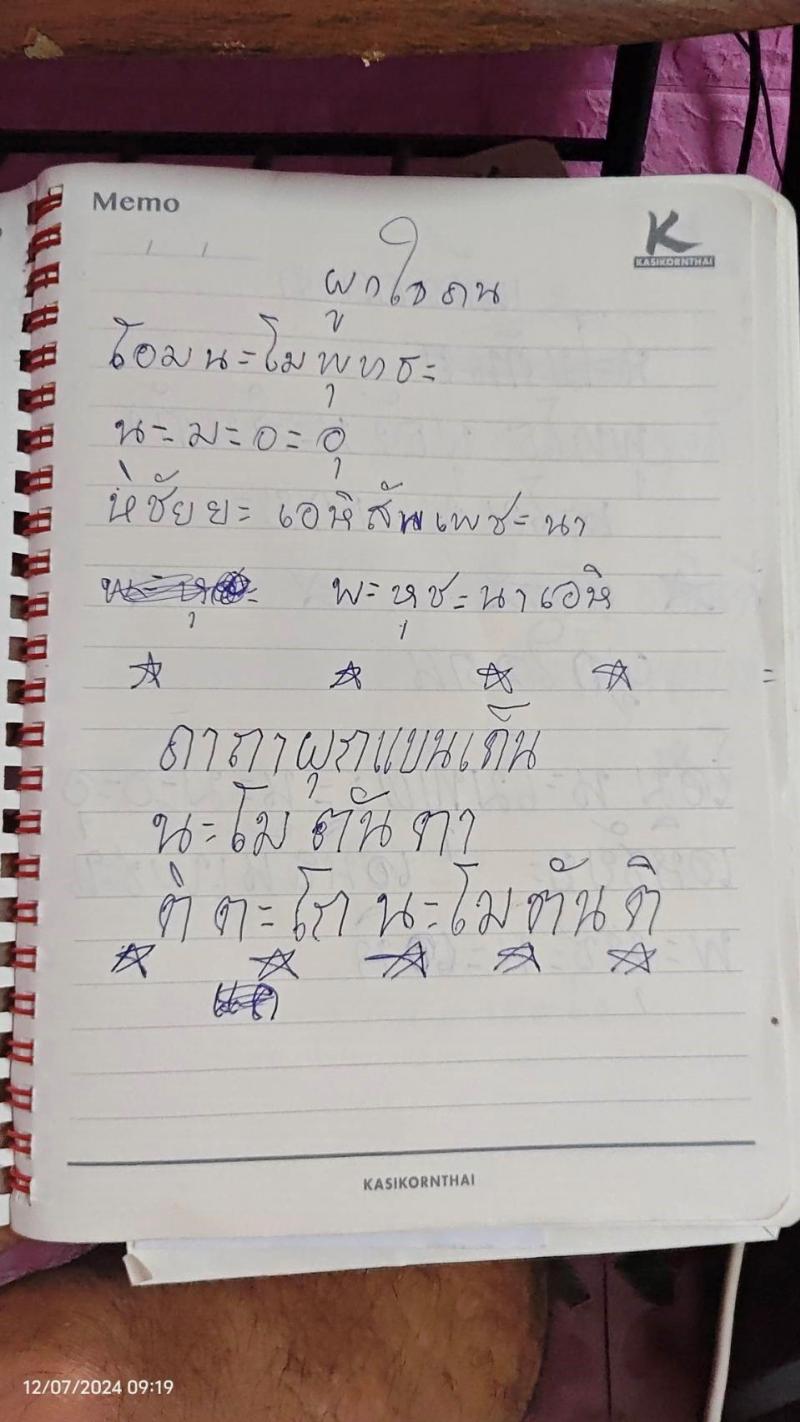 Memo
K
KASIKORNTHAI
ผูกใจคน
โอมนะโมพุทธะ
นะมะอะอุ
หิชัยยะ เอหิสัพเพชะนา
พะหุชะนาเอหิ
คาถาผุกแขนเด็น
นะโม ตันตา
ติ ตะโก นะโมตันติ
KASIKORNTHAI
12/07/2024 09:19